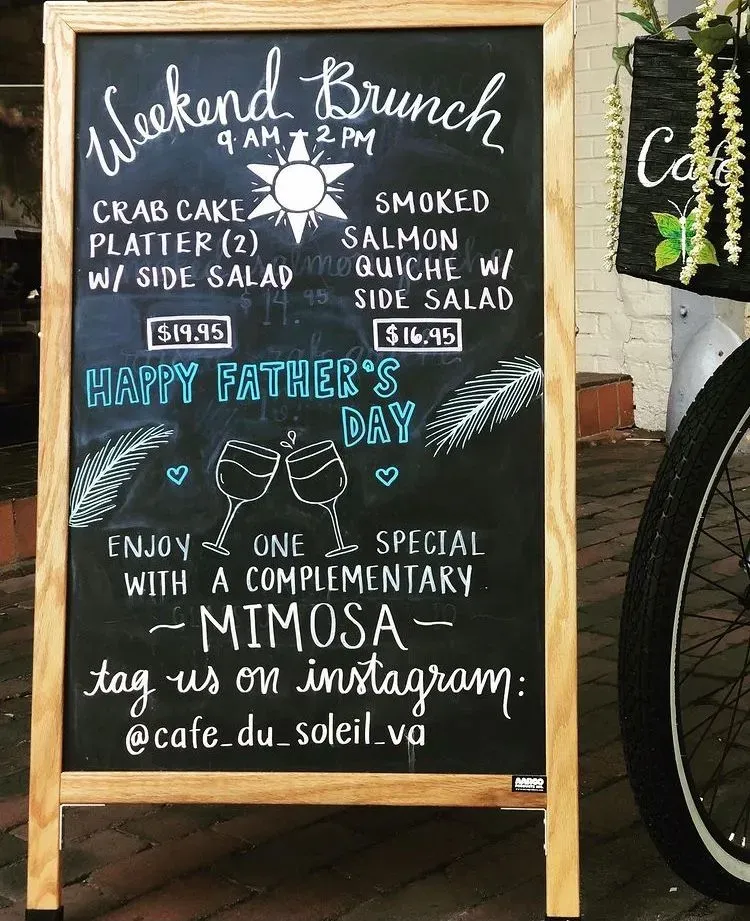 Weekend Brunch
9 AM - 2 PM
CRAB CAKE
PLATTER (2)
W/ SIDE SALAD
$19.95
SMOKED
SALMON
QUICHE W/
SIDE SALAD
$16.95
HAPPY FATHER'S
DAY
ENJOY ONE SPECIAL
WITH A COMPLEMENTARY
~ MIMOSA ~
tag us on instagram:
@cafe_du_soleil_va
AARCO
Café